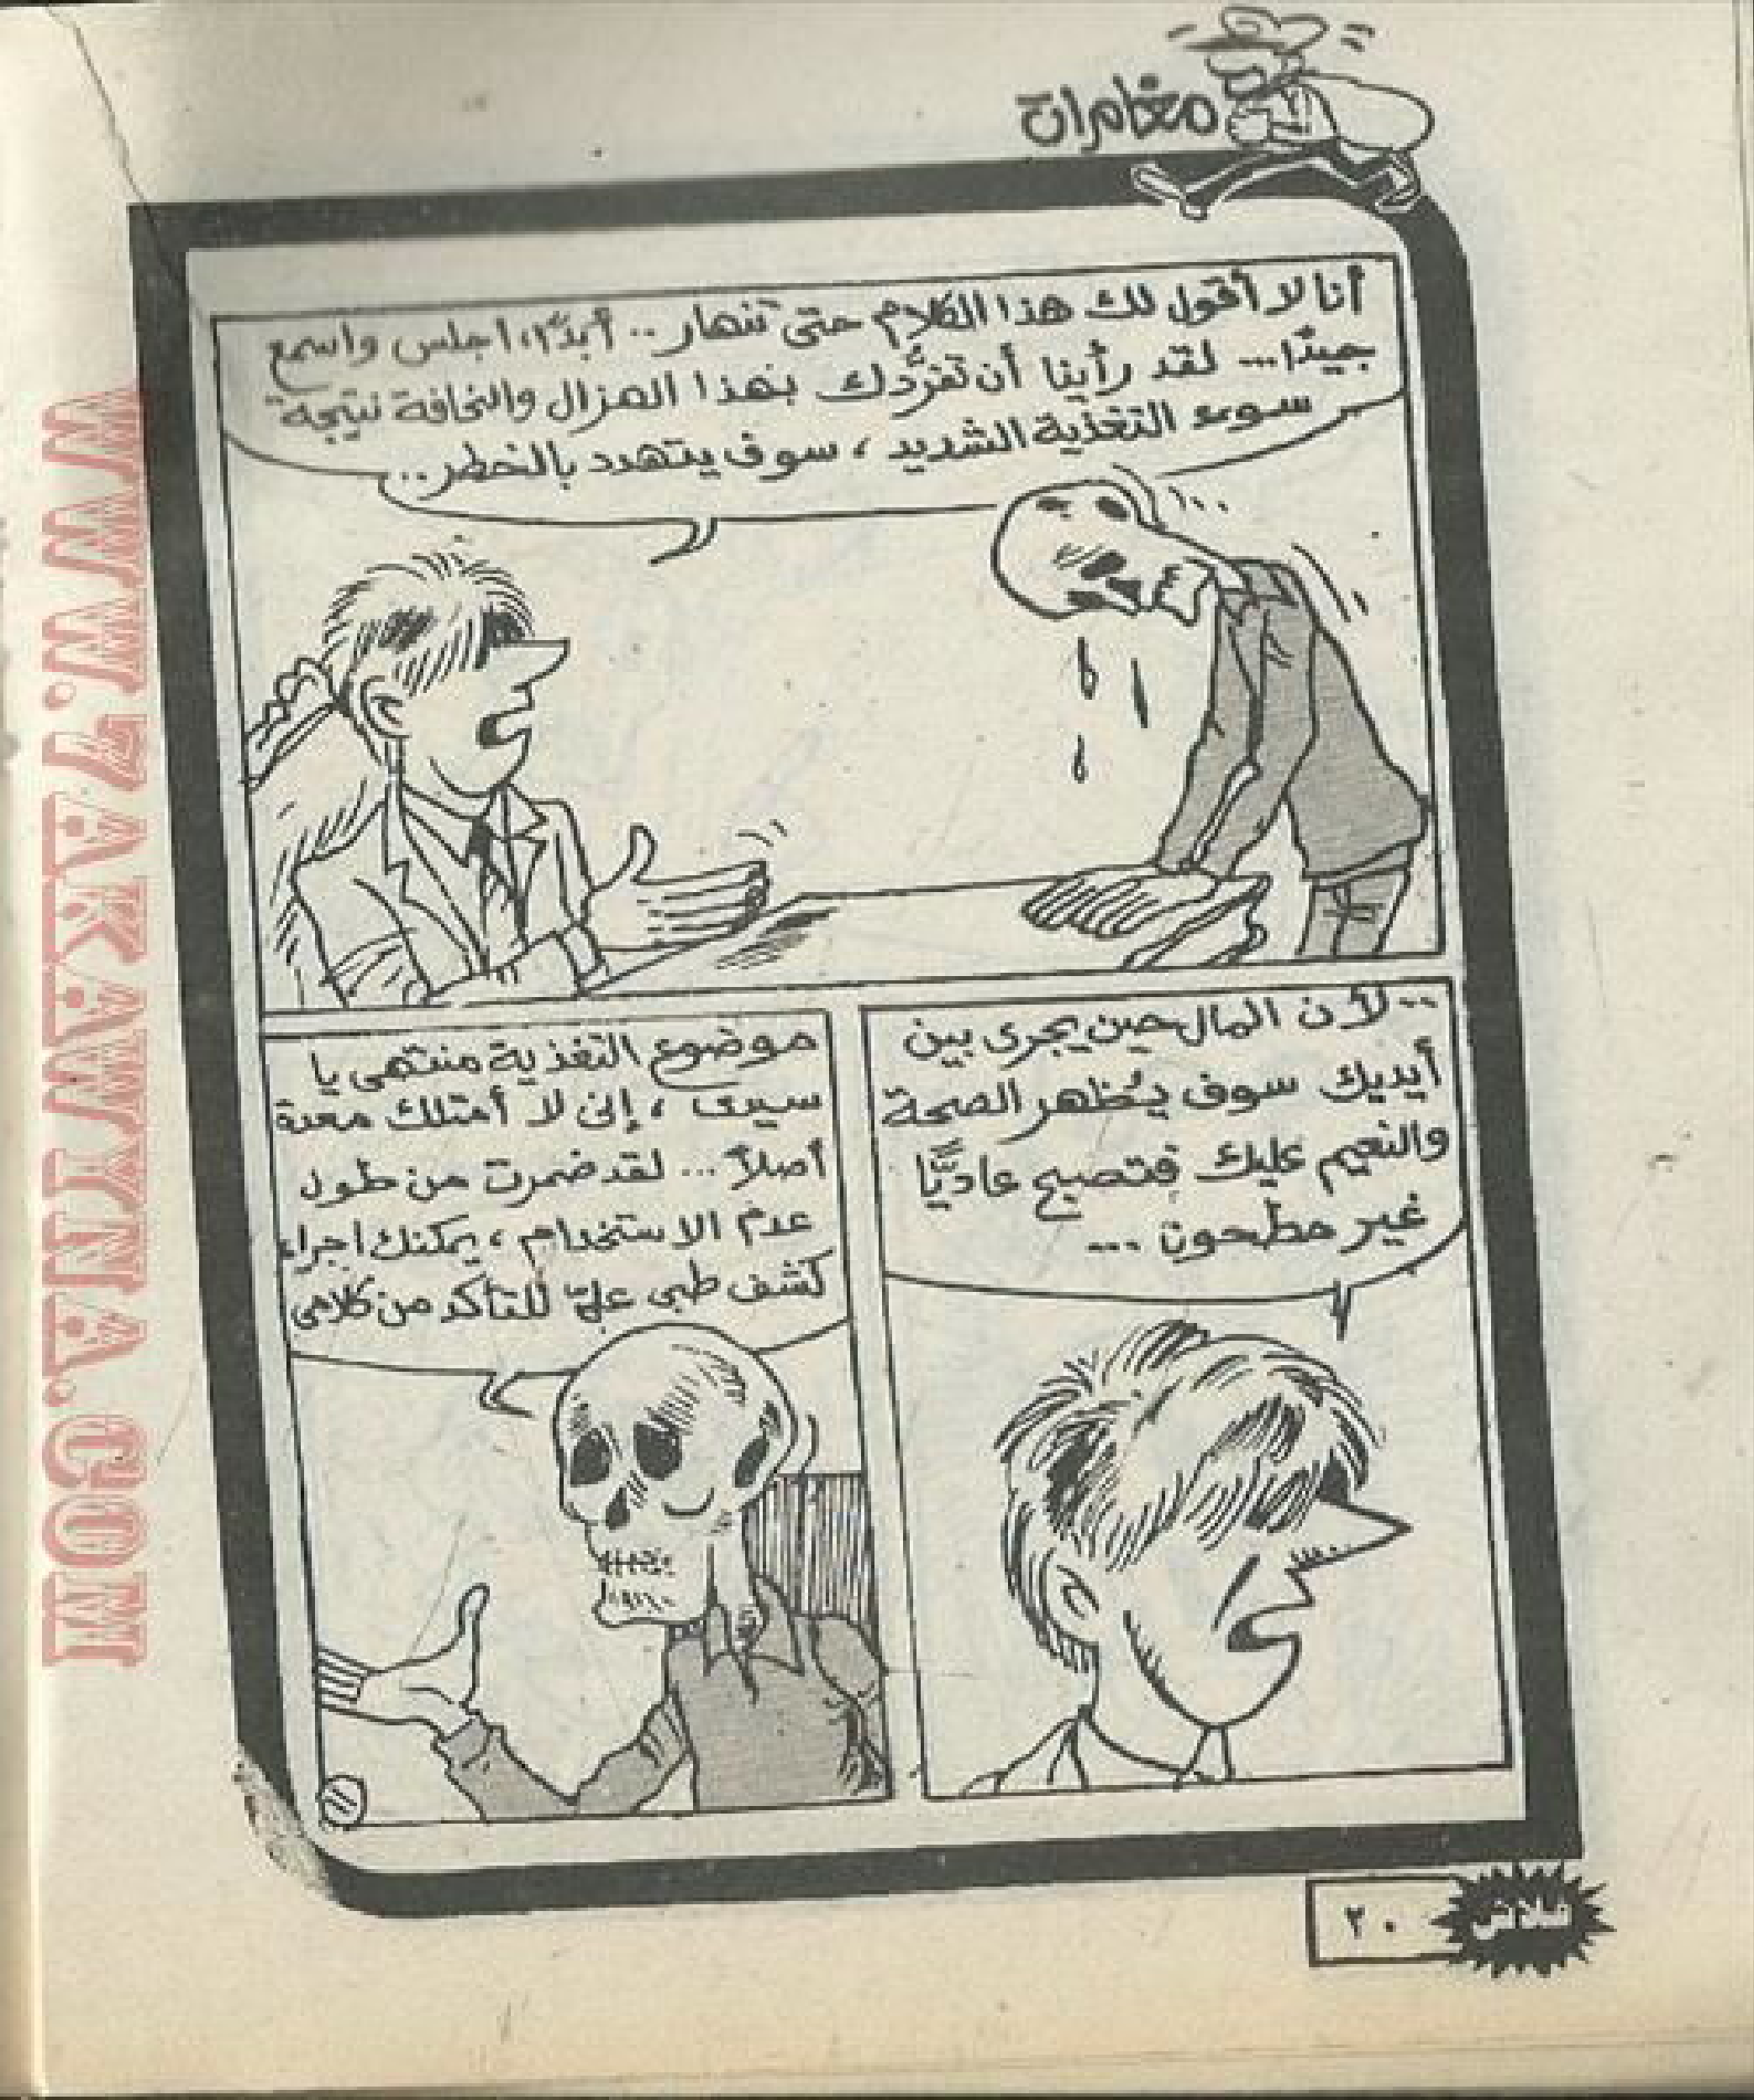 مغامرات
أنا لا أقول لك هذا الكلام حتى تنهار .. أبدًا، اجلس واسمع
جيدًا ... لقد رأينا أن تفرُّدك بهذا الهزال والنحافة نتيجة
سوء التغذية الشديد ، سوف يتهدد بالخطر ..
.. لأن المال حين يجرى بين
أيديك سوف يُظهر الصحة
والنعيم عليك فتصبح عاديًّا
غير مطحون ...
موضوع التغذية منتهى يا
سيدى ، إنى لا أمتلك معدة
أصلاً ... لقد ضمرت من طول
عدم الاستخدام ، يمكنك اجراء
كشف طبى علىّ للتأكد من كلامى
١١
فلاش
٢٠
WWW.7AKAWITNA.COM